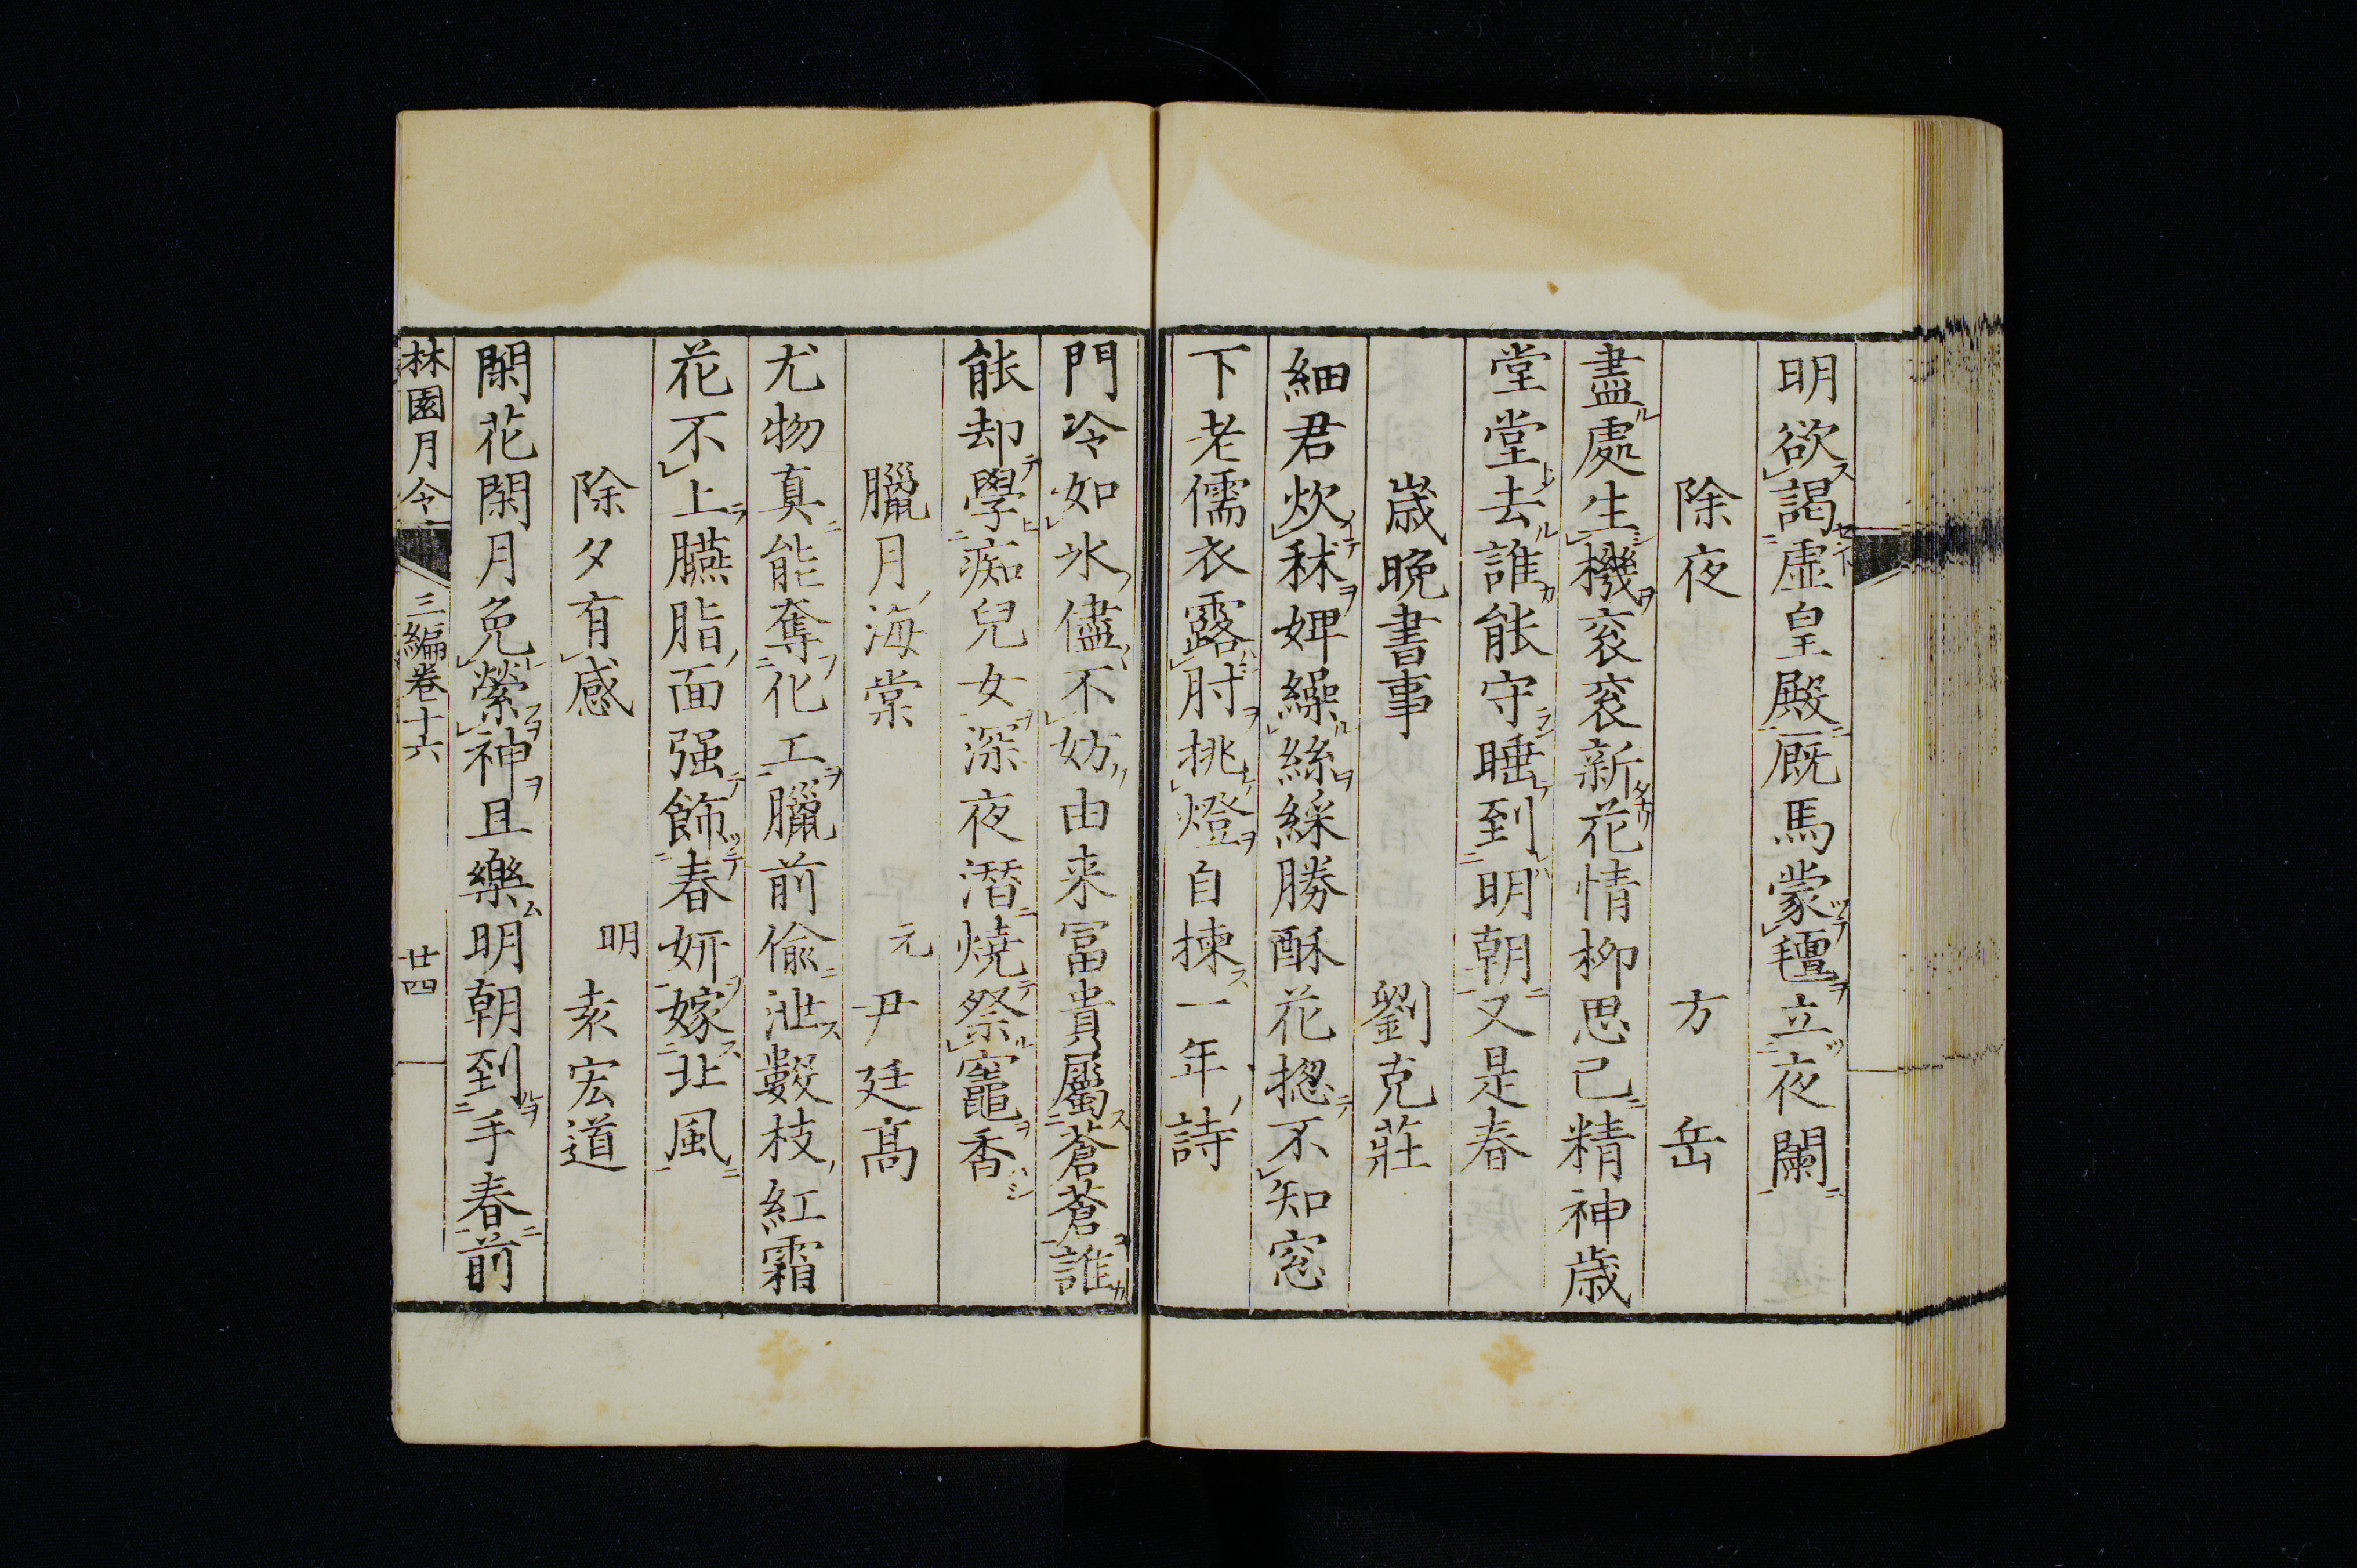 明欲謁虛皇殿厩馬蒙氊立夜闌
除夜　方岳
盡處生機衮衮新花情柳思已精神歳
堂堂去誰能守睡到明朝又是春
歳晩書事　劉克莊
細君炊秫婢繰絲綵勝酥花揔不知窓
下老儒衣露肘挑燈自揀一年詩
門冷如氷儘不妨由来冨貴屬蒼蒼誰
能却學痴兒女深夜潜燒祭竈香
臘月海棠　元　尹廷高
尤物真能奪化工臘前偸泄數枝紅霜
花不上臙脂面强飾春妍嫁北風
除夕有感　明　袁宏道
閑花閑月免縈神且樂明朝到手春前
林園月令　三編卷十六　廿四